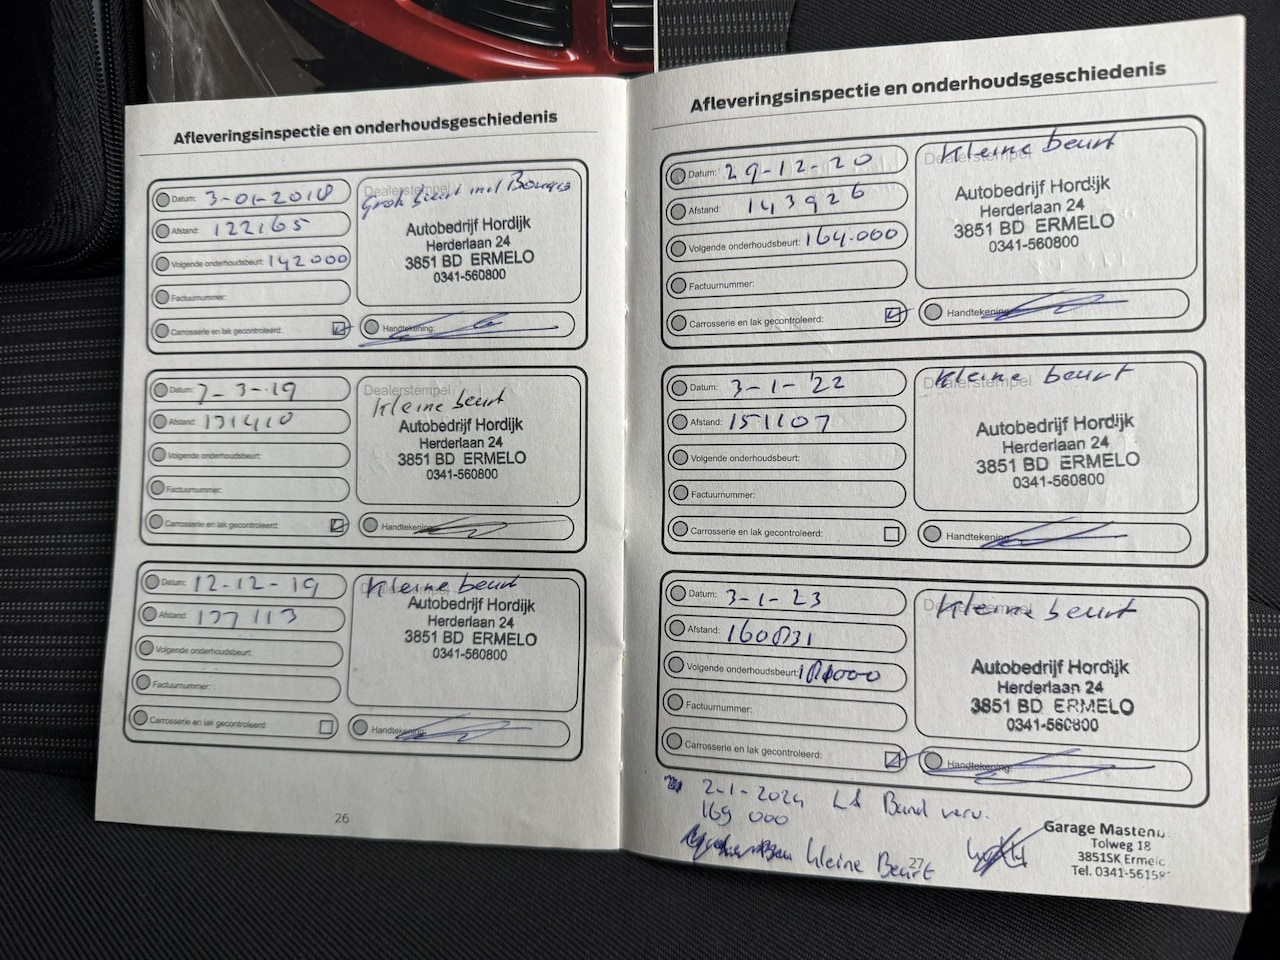 Afleveringsinspectie en onderhoudsgeschiedenis
Datum: 3-01-2018
Afstand: 122165
Volgende onderhoudsbeurt: 142000
Factuurnummer:
Carrosserie en lak gecontroleerd:
Dealerstempel
Grote beurt incl Bougies
Autobedrijf Hordijk
Herderlaan 24
3851 BD ERMELO
0341-560800
Handtekening:
Datum: 7-3-19
Afstand: 131410
Volgende onderhoudsbeurt:
Factuurnummer:
Carrosserie en lak gecontroleerd:
Dealerstempel
Kleine beurt
Autobedrijf Hordijk
Herderlaan 24
3851 BD ERMELO
0341-560800
Handtekening:
Datum: 12-12-19
Afstand: 137113
Volgende onderhoudsbeurt:
Factuurnummer:
Carrosserie en lak gecontroleerd:
Dealerstempel
Kleine beurt
Autobedrijf Hordijk
Herderlaan 24
3851 BD ERMELO
0341-560800
Handtekening:
26
Afleveringsinspectie en onderhoudsgeschiedenis
Datum: 29-12-20
Afstand: 143926
Volgende onderhoudsbeurt: 164.000
Factuurnummer:
Carrosserie en lak gecontroleerd:
Dealerstempel
Kleine beurt
Autobedrijf Hordijk
Herderlaan 24
3851 BD ERMELO
0341-560800
Handtekening:
Datum: 3-1-'22
Afstand: 151107
Volgende onderhoudsbeurt:
Factuurnummer:
Carrosserie en lak gecontroleerd:
Dealerstempel
Kleine beurt
Autobedrijf Hordijk
Herderlaan 24
3851 BD ERMELO
0341-560800
Handtekening:
Datum: 3-1-23
Afstand: 160831
Volgende onderhoudsbeurt: 181000
Factuurnummer:
Carrosserie en lak gecontroleerd:
Dealerstempel
Kleine beurt
Autobedrijf Hordijk
Herderlaan 24
3851 BD ERMELO
0341-560800
Handtekening:
2-1-2024 LA Band verv.
169 000
Kleine Beurt
27
Garage
Tolweg 18
3851SK Ermelo
Tel. 0341-56158